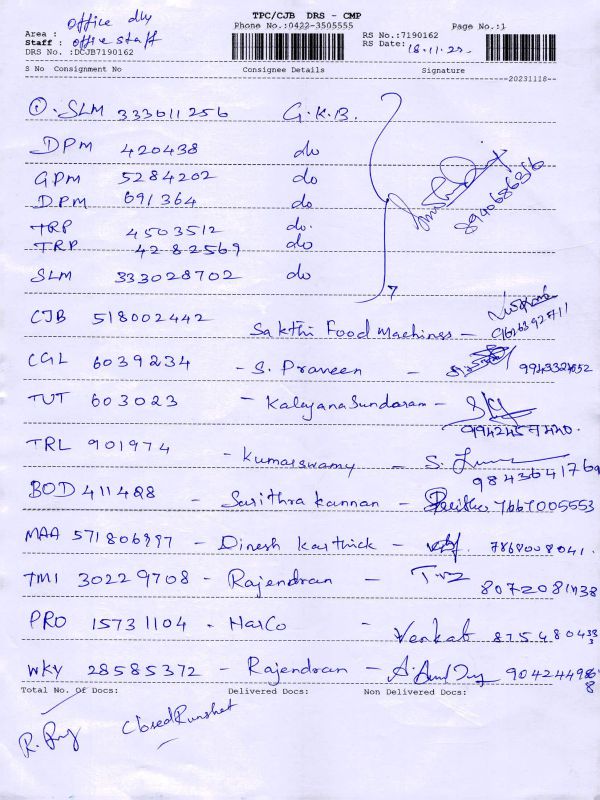 TPC/CJB DRS - CMP
Phone No.:0422-3505555 Page No.:1
Area : Office dly
Staff : office staff
DRS No. :DCJB7190162
RS No.:7190162
RS Date: 18.11.23
S No Consignment No Consignee Details Signature
20231118
①. SLM 333011256 G.K.B.
DPM 420438 do
GPM 5284202 do
DPM 691364 do
8940686316
TRP 4503512 do.
TRP 4282569 do
SLM 333028702 do
CJB 518002442 Sakthi Food Machings -
CGL 6039234 - S. Praveen -
TUT 603023 - Kalayana Sundaram -
TRL 901974 - Kumarswamy -
9843641769
BOD 411488 - Sarithra Kannan - 7667005553
MAA 571806997 - Dinesh Karthick - 7868008041.
TMI 30229708 - Rajendran -
PRO 15731104 - HarCo - Venkat
WKY 28585372 - Rajendran -
Total No. Of Docs: Delivered Docs: Non Delivered Docs:
Closed Runshet